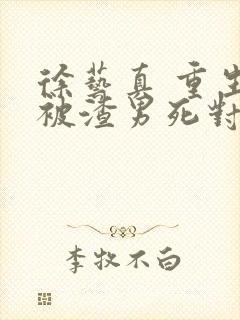 徐藝真 重生
被渣男死對
李牧不白